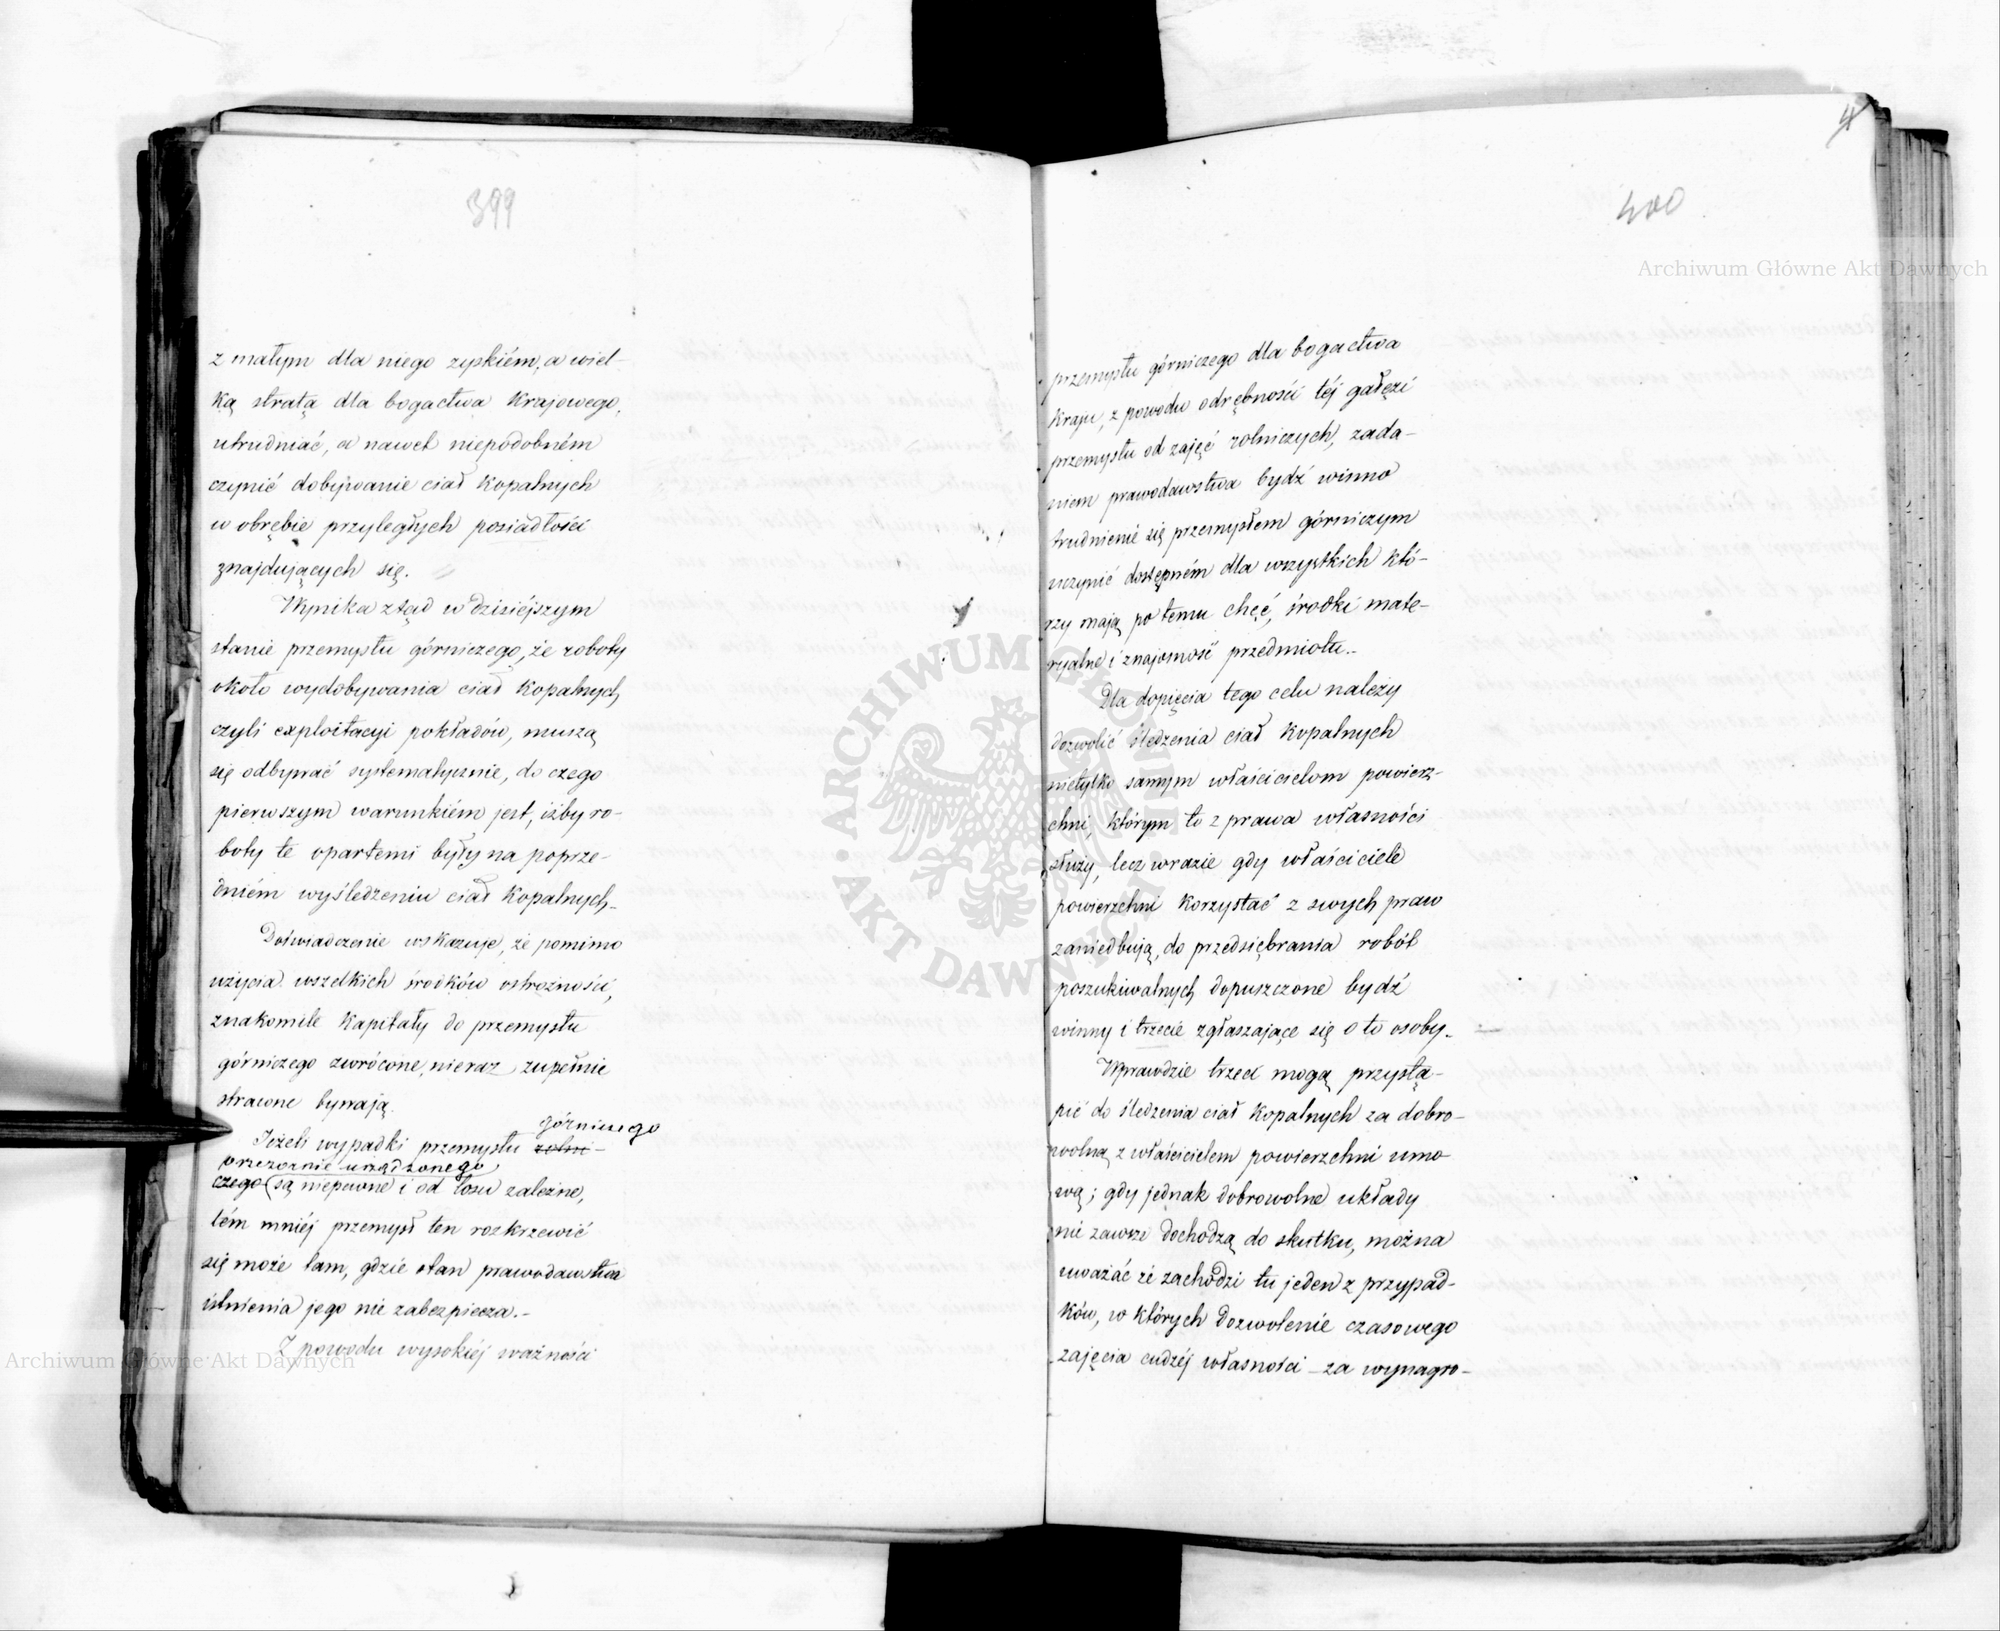 399
z małym dla niego zyskiém, a wiel-
ką stratą dla bogactwa Krajowego,
utrudniać, a nawet niepodobném
czynić dobywanie ciał Kopalnych
w obrębie przyległych posiadłości
znajdujących się.
Wynika ztąd w dzisiéjszym
stanie przemysłu górniczego, że roboty
około wydobywania ciał Kopalnych,
czyli exploitacyi pokładów, muszą
się odbywać systematycznie, do czego
pierwszym warunkiém jest, iżby ro-
boty te opartemi były na poprze-
dniém wyśledzeniu ciał Kopalnych.
Doświadczenie wskazuje, że pomimo
użycia wszelkich środków ostrożności,
znakomite Kapitały do przemysłu
górniczego zwrócone, nieraz zupełnie
stracone bywają.
górniczego
Jeżeli wypadki przemysłu rolni-
przezornie urządzonego
czego są niepewne i od losu zależne,
tém mniéj przemysł ten rozkrzewić
się może tam, gdzie stan prawodawstwa
istnienia jego nie zabezpiecza.-
Z powodu wysokiéj ważności
4
400
przemysłu górniczego dla bogactwa
Kraju, z powodu odrębności téj gałęzi
przemysłu od zajęć rolniczych, zada-
niem prawodawstwa bydź winno
trudnienie się przemysłem górniczym
uczynić dostępném dla wszystkich któ-
rzy mają po temu chęć, środki mate-
ryalne i znajomość przedmiotu.-
Dla dopięcia tego celu należy
dozwolić śledzenia ciał Kopalnych
nietylko samym właścicielom powierz-
chni, którym to z prawa własności
służy, lecz wrazie gdy właściciele
powierzchni Korzystać z swych praw
zaniedbują, do przedsiębrania robót
poszukiwalnych dopuszczone bydź
winny i trzecie zgłaszające się o to osoby.
Wprawdzie trzeci mogą przystą-
pić do śledzenia ciał Kopalnych za dobro-
wolną z właścicielem powierzchni umo
wą; gdy jednak dobrowolne układy
nie zawsze dochodzą do skutku, można
uważać że zachodzi tu jeden z przypad-
ków, w których dozwolenie czasowego
zajęcia cudzéj własności za wynagro-
Archiwum Główne Akt Dawnych
Archiwum Główne Akt Dawnych
ARCHIWUM GŁÓWNE · AKT DAWNYCH ·